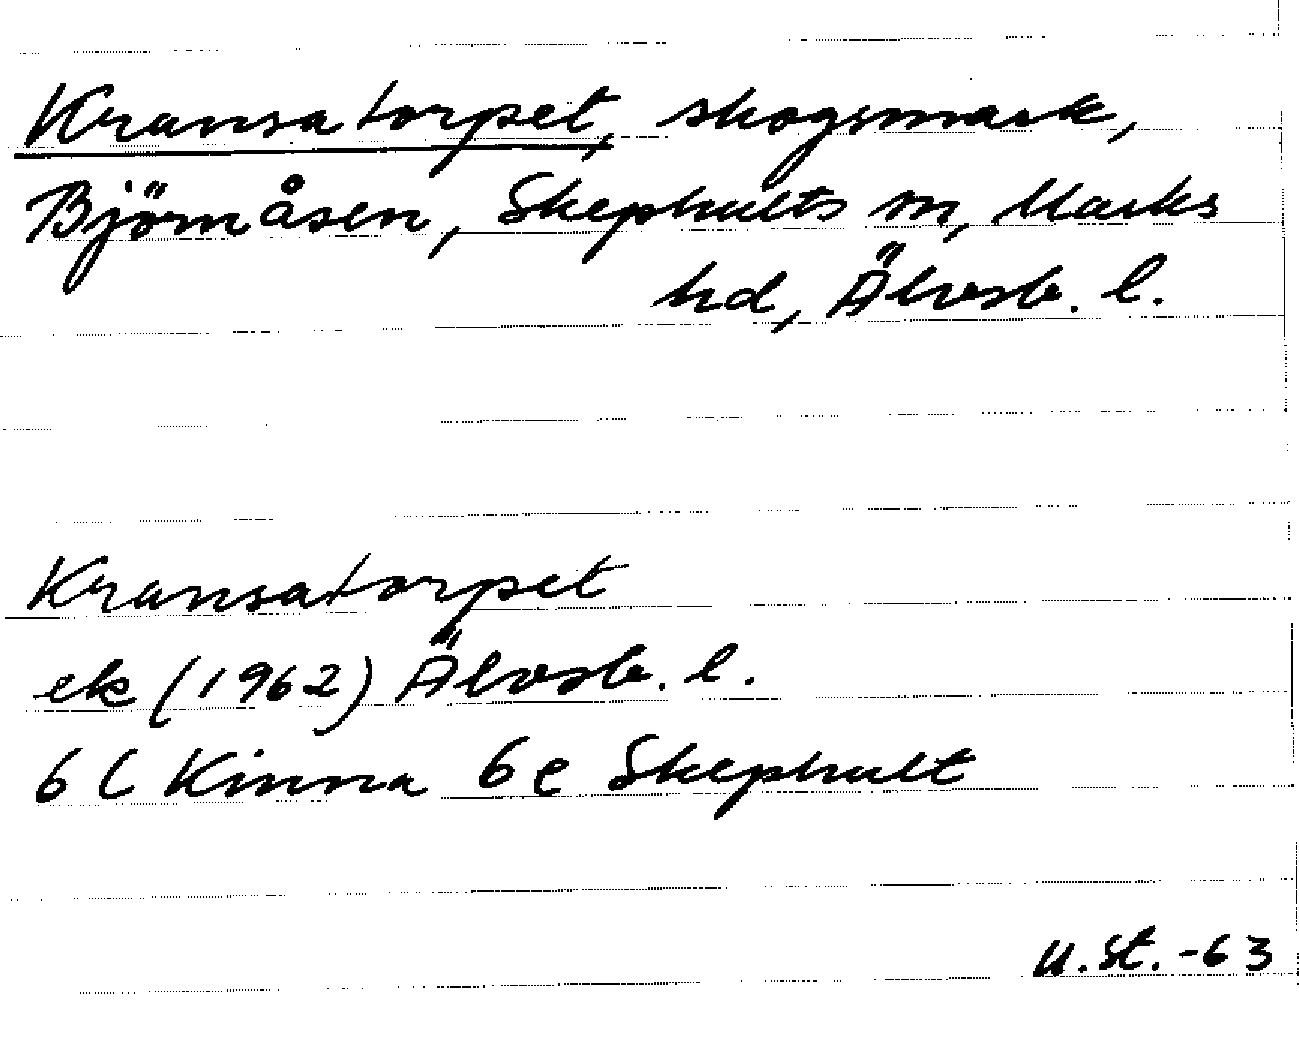 Kransatorpet, skogsmark,
Björnåsen, Skephults sn, Marks
hd, Älvsb. l.
Kransatorpet
ek (1962) Älvsb. l.
6 C Kinna 6 e Skephult
U.St.-63